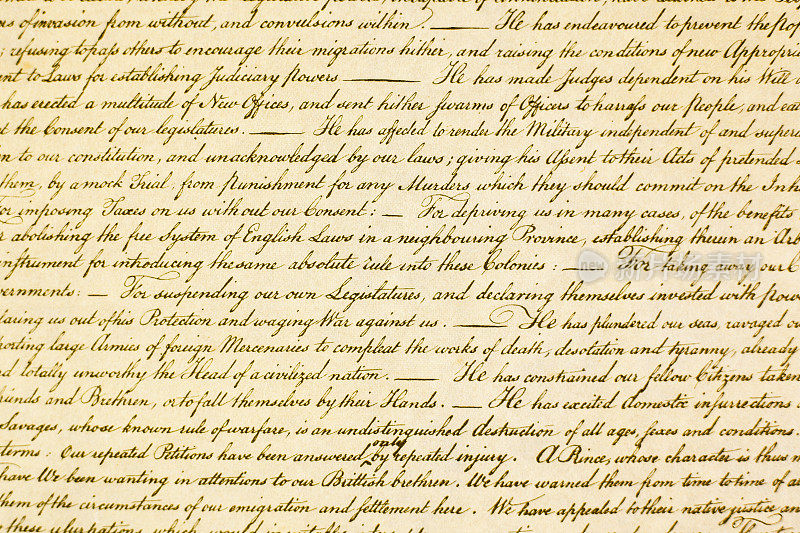 ns of invasion from without, and convulsions within. — He has endeavoured to prevent the pop
; refusing to pass others to encourage their migrations hither, and raising the conditions of new Appropria
ent to Laws for establishing Judiciary powers — He has made Judges dependent on his Will
has erected a multitude of New Offices, and sent hither swarms of Officers to harrass our People, and eat
t the Consent of our legislatures. — He has affected to render the Military independent of and super
on to our constitution, and unacknowledged by our laws; giving his Assent to their Acts of pretended
them, by a mock Trial, from Punishment for any Murders which they should commit on the Inh
For imposing Taxes on us without our Consent: — For depriving us in many cases, of the benefits
r abolishing the free System of English Laws in a neighbouring Province, establishing therein an Arb
instrument for introducing the same absolute rule into these Colonies: — For taking away our C
vernments: — For suspending our own Legislatures, and declaring themselves invested with pow
laring us out of his Protection and waging War against us. — He has plundered our seas, ravaged ou
porting large Armies of foreign Mercenaries to compleat the works of death, desolation and tyranny, already
nd totally unworthy the Head of a civilized nation. — He has constrained our fellow Citizens taken
friends and Brethren, or to fall themselves by their Hands. — He has excited domestic insurrections
Savages, whose known rule of warfare, is an undistinguished destruction of all ages, sexes and conditions.
terms: Our repeated Petitions have been answered only by repeated injury. A Prince, whose character is thus m
have We been wanting in attentions to our Brittish brethren. We have warned them from time to time of at
them of the circumstances of our emigration and settlement here. We have appealed to their native justice an
these usurpations, which would
new